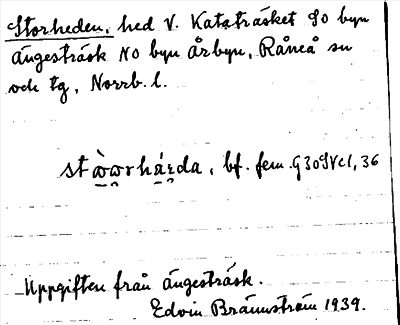 Storheden, hed V. Kataträsket SO byn
Ängesträsk NO byn Årbyn, Råneå sn
och tg, Norrb. l.
bf. fem.
Uppgiften från Ängesträsk.
Edvin Brännström 1939.